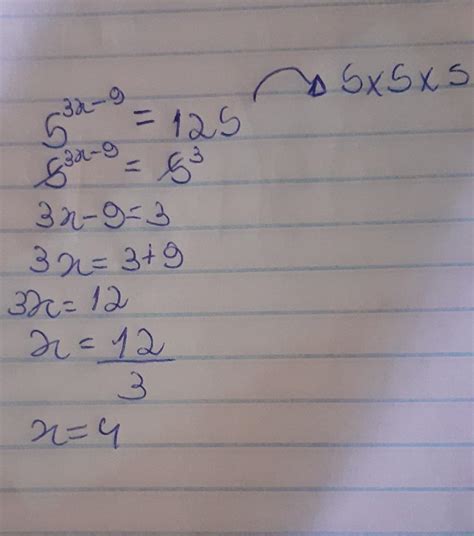 5^{3x-9} = 125 → 5x5x5
5^{3x-9} = 5^3
3x-9=3
3x=3+9
3x=12
x=12/3
x=4